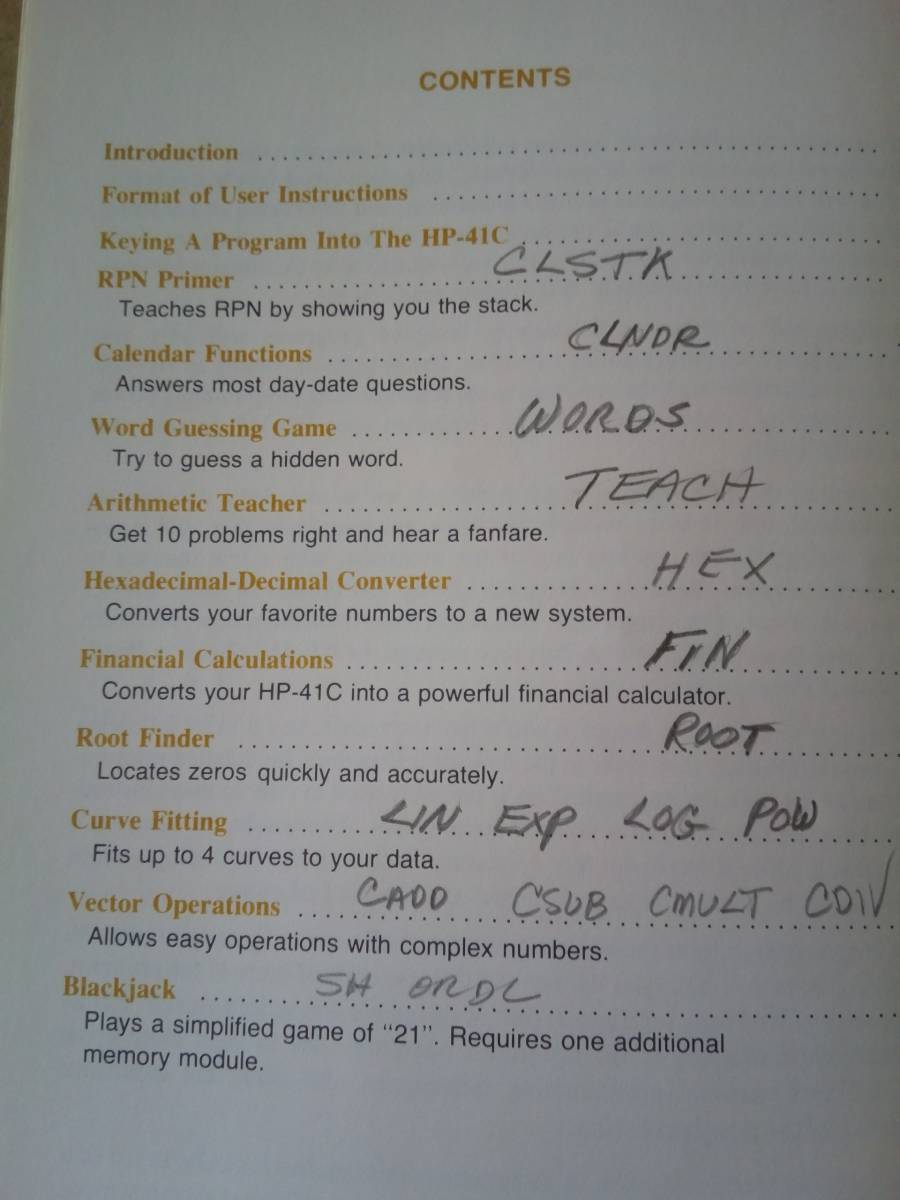 CONTENTS
Introduction
Format of User Instructions
Keying A Program Into The HP-41C
RPN Primer CLSTK
Teaches RPN by showing you the stack.
Calendar Functions CLNDR
Answers most day-date questions.
Word Guessing Game WORDS
Try to guess a hidden word.
Arithmetic Teacher TEACH
Get 10 problems right and hear a fanfare.
Hexadecimal-Decimal Converter HEX
Converts your favorite numbers to a new system.
Financial Calculations FIN
Converts your HP-41C into a powerful financial calculator.
Root Finder ROOT
Locates zeros quickly and accurately.
Curve Fitting LIN EXP LOG POW
Fits up to 4 curves to your data.
Vector Operations CADD CSUB CMULT CDIV
Allows easy operations with complex numbers.
Blackjack SH ORDL
Plays a simplified game of “21”. Requires one additional
memory module.